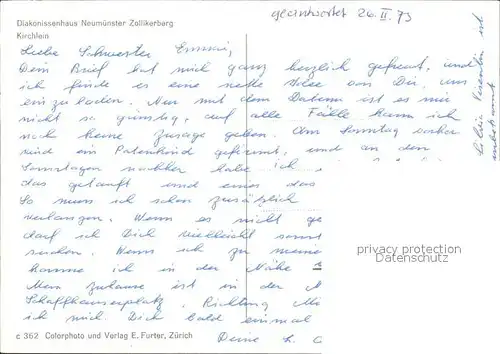 geantwortet 26.II.73
Diakonissenhaus Neumünster Zollikerberg
Kirchlein
Liebe Schwester Emmi,
Dein Brief hat mich ganz herzlich gefreut, und
ich finde es eine nette Idee von Dir, uns
einzuladen. Nur mit dem Datum ist es mir
nicht so günstig, auf alle Fälle kann ich
noch keine Zusage geben. Am Sonntag vorher
wird ein Patenkind gefirmt, und an den
Sonntagen nachher habe ich
das getauft und eines das
So muss ich schon zusätzlich
verlangen. Wenn es nicht ge
darf ich Dich vielleicht sonst
suchen. Wenn ich zu meine
komme ich in der Nähe
Mein Zuhause ist in der
Schaffhauserplatz, Richtung
ich mich Dich bald einmal
Deine
privacy protection
Datenschutz
c 362 Colorphoto und Verlag E. Furter, Zürich